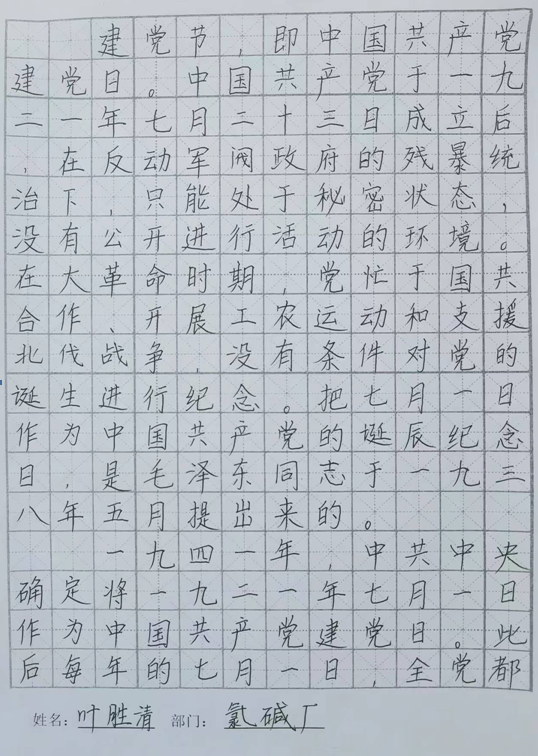 建党节，即中国共产党
建党日。中国共产党于一九
二一年七月二十三日成立后
，在反动军阀政府的残暴统
治下，只能处于秘密状态，
没有公开进行活动的环境。
在大革命时期，党忙于国共
合作、开展工农运动和支援
北伐战争，没有条件对党的
诞生进行纪念。把七月一日
作为中国共产党的诞辰纪念
日，是毛泽东同志于一九三
八年五月提出来的。
一九四一年，中共中央
确定将一九二一年七月一日
作为中国共产党建党日。此
后每年的七月一日，全党都
姓名：叶胜清 部门：氯碱厂